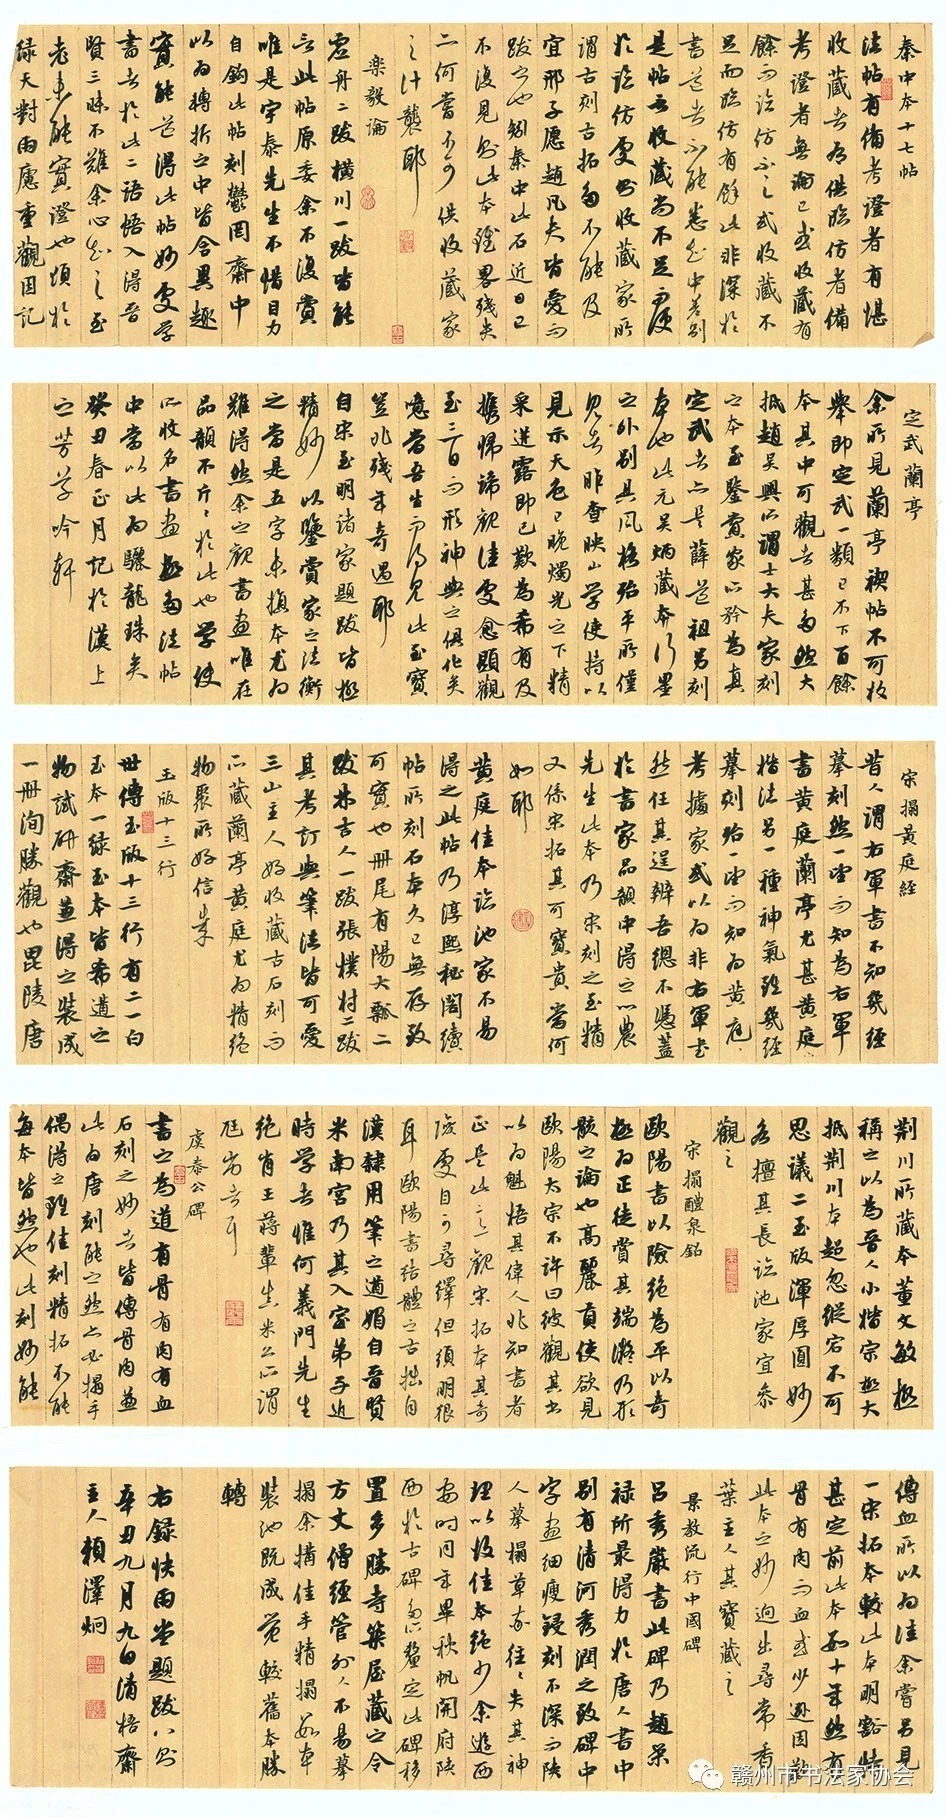 秦中本十七帖
法帖有備考證者有堪
收藏者有供臨仿者備
考證者無論已或收藏有
餘而臨仿不足或收藏不
足而臨仿有餘此非深於
書道者不能悉知中差別
是帖吾收藏尚不足而便
於臨仿處
謂古刻古拓多不能及
宜邢子愿趙凡夫皆愛而
跋之也
不復見則此本雖略殘失
二何嘗不可供收藏家
之什襲耶
樂毅論
虛舟二跋橫川一跋皆能
言此帖原委余不復贅
唯是宇泰先生不惜目力
自鈎此帖刻鬱岡齋中
以為轉折之中皆含異趣
實能道得此帖妙處學
書者於此二語悟入得晉
賢三昧不難余心知之至
老未能實證也煩於
綠天對雨慮重觀因記
定武蘭亭
余所見蘭亭禊帖不可枚
舉即定武一類已不下百餘
本其中可觀者甚多然大
抵趙吳興所謂士大夫家刻
之本至鑒賞家所矜為真
定武者亦是薛道祖另刻
本也此元吳炳藏本行墨
之外別具風格殆平所僅
見者昨查映山學使持以
見示天色已晚燭光之下精
采迸露即已歎為希有及
攜歸諦觀佳處愈顯觀
至三日而形神與之俱化矣
噫當吾生而得見此至寶
豈非殘年奇遇耶
自宋至明諸家題跋皆極
精妙以鑒賞家之法衡
之當是五字未損本尤為
難得然余之觀書畫唯在
品韻不斤斤於此也學使
所收名書畫極多法帖
中當以此為驪龍珠矣
癸丑春正月記於漢上
之芳草吟軒
宋搨黃庭經
昔人謂右軍書不知幾經
摹刻然一望而知為右軍
書黃庭蘭亭尤甚黃庭
楷法另一種神氣雖幾經
摹刻殆一望而知為黃庭
考據家或以為非右軍書
然任其逞辨吾總不憑蓋
於書家品韻中得之以農
先生此本乃宋刻之至精
又係宋拓其可寶貴當何
如耶
黃庭佳本臨池家不易
得之此帖乃淳熙秘閣續
帖所刻石本久已無存致
可寶也冊尾有陽大瓢二
跋朱古人一跋張樸村二跋
其考訂與筆法皆可愛
三山主人好收藏古石刻而
所藏蘭亭黃庭尤為精絕
物聚所好信哉
玉版十三行
世傳玉版十三行有二一白
玉本一綠玉本皆希遘之
物試研齋並得之裝成
一冊洵勝觀也毘陵唐
荊川所藏本董文敏極
稱之以為晉人小楷宗極大
抵荊川本超忽縱宕不可
思議二玉版渾厚圓妙
各擅其長臨池家宜參
觀之
宋搨醴泉銘
歐陽書以險絕為平以奇
極為正徒賞其端凝乃形
骸之論也高麗貢使欲見
歐陽太宗不許曰彼觀其書
以為魁悟其偉人非知書者
正是此言觀宋拓本其奇
險處自可尋繹但須明眼
耳歐陽書結體之古拙自
漢隸用筆之遒媚自晉賢
米南宮乃其入室弟子近
時學者惟何義門先生
絕肖王蔣輩真米公所謂
尪劣者耳
虞恭公碑
書之為道有骨有肉有血
石刻之妙者皆傳骨肉並
此為唐刻能之然亦必搨手
偶得之雖佳刻精拓不能
每本皆然也此刻妙能
傳血所以為佳余嘗另見
一宋拓本較此本明豁特
甚定前此本數十年然有
骨有肉而血或少遜因歎
此本之妙迥出尋常香
葉主人其寶藏之
景教流行中國碑
呂秀巖書此碑乃趙榮
祿所最得力於唐人書中
別有清河秀潤之致碑中
字畫細瘦鋟刻不深而陝
人摹搨草率往往失其神
理以故佳本絕少余遊西
安時同年畢秋帆開府陝
西於古碑多所釐定此碑移
置多勝寺築屋藏之令
方丈僧經管外人不易摹
搨余攜佳手精搨數本
裝池既成覺較舊本勝
轉
右錄快雨堂題跋八則
辛丑九月九日清梧齋
主人賴澤炯
赣州市书法家协会